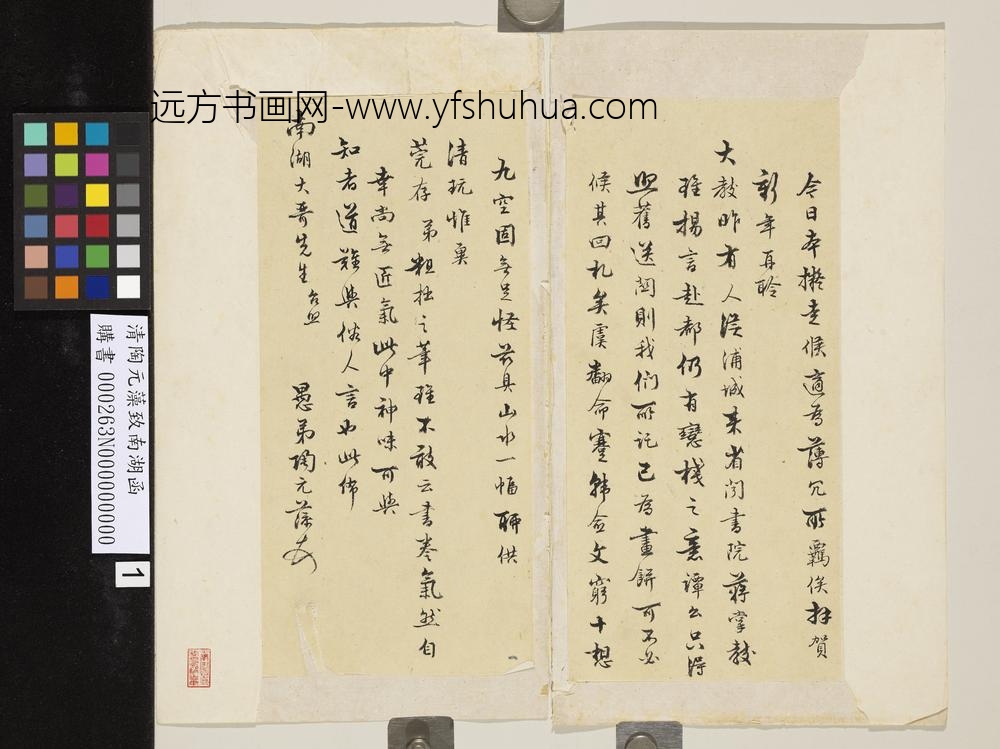 远方书画网-www.yfshuhua.com
今日本擬走候適為薄冗所羈俟拜賀
新年再聆
大教昨有人從浦城來省聞書院蔣掌教
雖揚言赴都仍有戀棧之意譚公只得
照舊送關則我們所託已為畫餅可不必
候其回札矣虞翻命蹇韓愈文窮十想
九空固無足怪茲具山水一幅聊供
清玩惟冀
莞存弟粗拙之筆雖不敢云書卷氣然自
幸尚無匠氣此中神味可與
知者道難與俗人言也此佈
南湖大哥先生 愚弟陶元藻
清陶元藻致南湖函
購書 000263N000000000
1